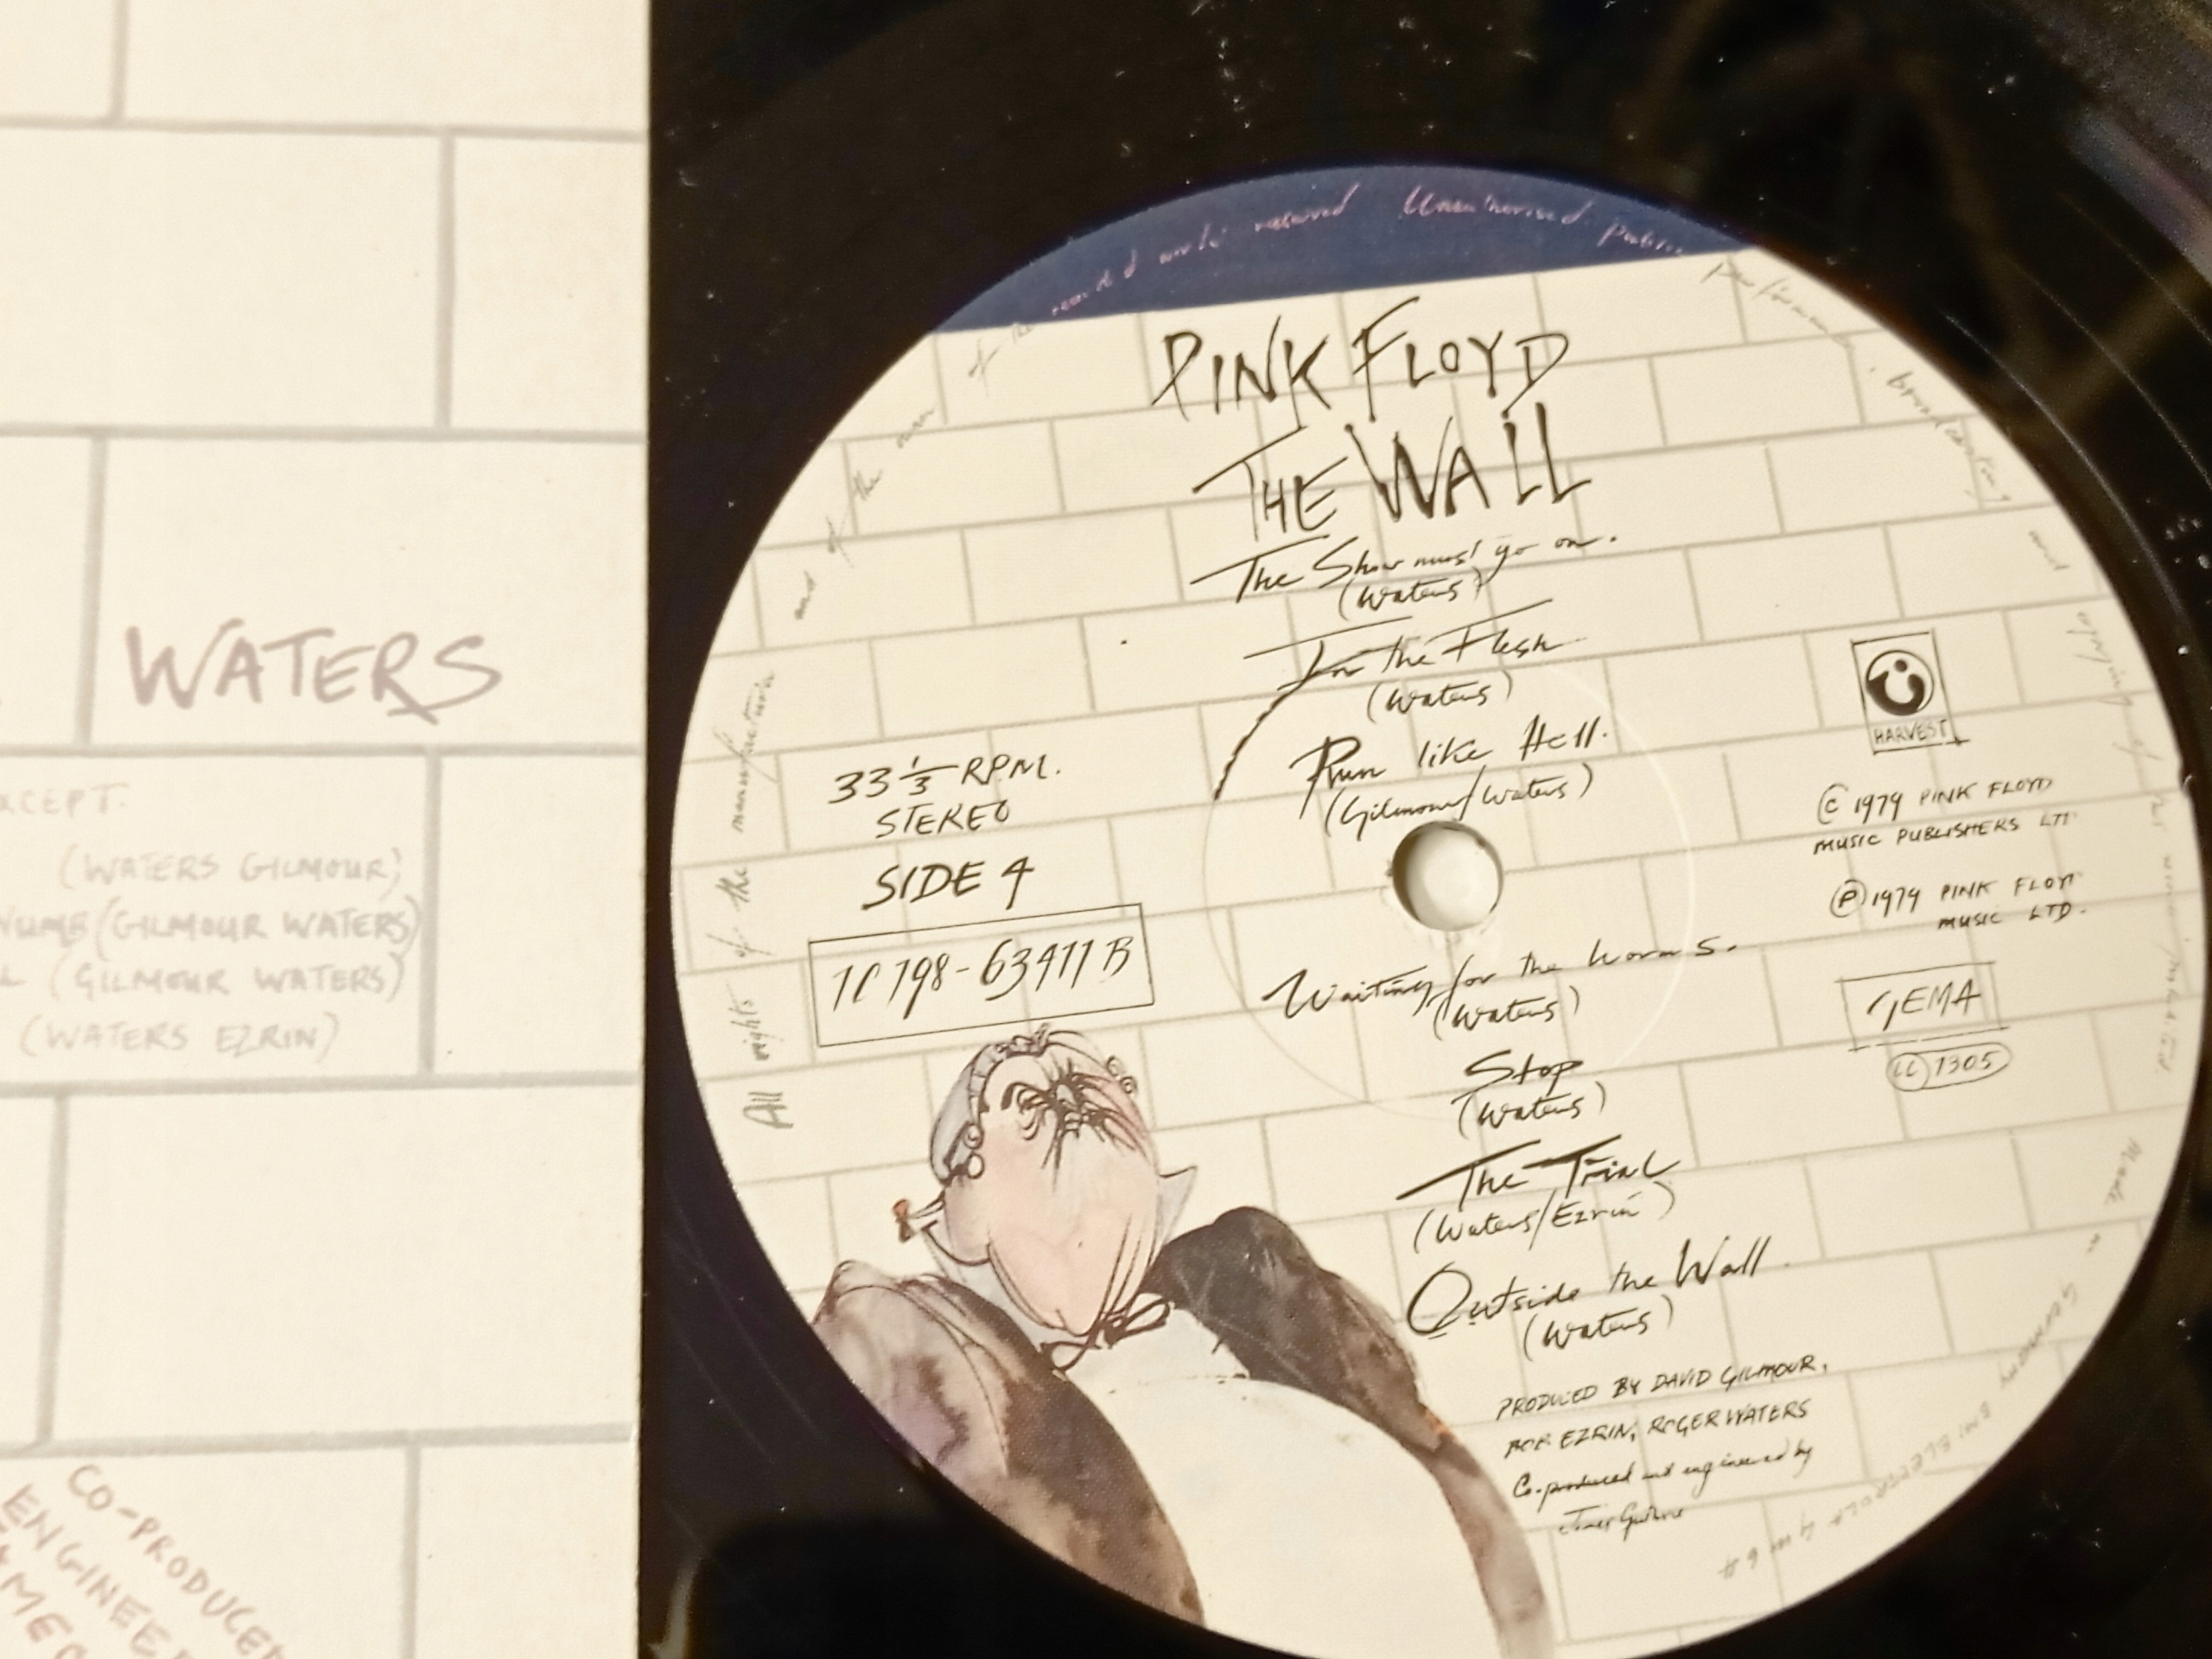 WATERS
XCEPT.
(WATERS GILMOUR)
NUMB (GILMOUR WATERS)
L (GILMOUR WATERS)
(WATERS EZRIN)
CO-PRODUCE
ENGINEE
PINK FLOYD
THE WALL
The Show must go on.
(Waters)
In the Flesh
(Waters)
Run like Hell.
(Gilmour/Waters)
33 1/3 RPM.
STEREO
SIDE 4
1C 198-63411 B
Waiting for the Worms.
(Waters)
Stop
(Waters)
The Trial
(Waters/Ezrin)
Outside the Wall.
(Waters)
PRODUCED BY DAVID GILMOUR,
BOB EZRIN, ROGER WATERS
Co-produced and engineered by
James Guthrie
HARVEST
© 1979 PINK FLOYD
MUSIC PUBLISHERS LTD
℗ 1979 PINK FLOYD
MUSIC LTD.
GEMA
LC 1305
All rights of the manufacturer and of the owner of the recorded work reserved Unauthorised public performance, broadcasting and copying of Made in Germany EMI ELECTROLA GmbH